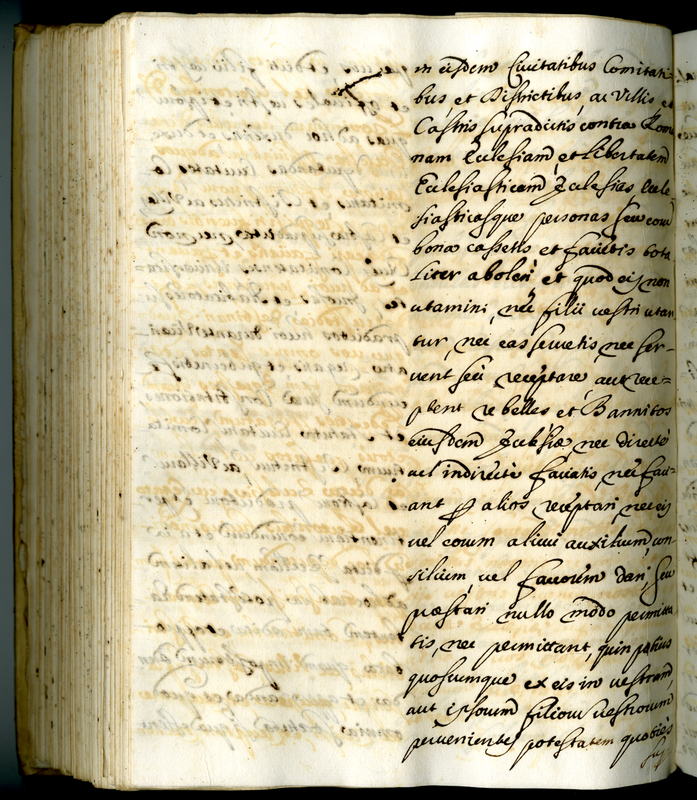 in eisdem Civitatibus Comitati-
bus, et Districtibus, ac Villis, et
Castris supradictis contra Rom
nam Ecclesiam, et Libertatem
Ecclesiasticam Ecclesias Eccle
siasticasque personas seu eorum
bona cassetis et facietis tota
liter aboleri, et quod eis non
utamini, nec filii vestri utan
tur, nec eas servetis nec ser-
vent seu receptare, aut rece=
ptent rebelles et Bannitos
eiusdem Ecclesiæ, nec directè
vel indirectè faciatis, nec faci-
ant per alios receptari, nec eis
vel eorum alicui auxilium, con
silium, vel favorem dari, seu
præstari nullo modo permitta
tis, nec permittant, quin potius
quoscumque ex eis in vestram,
aut ipsorum filiorum vestrorum
pervenientes potestatem quoties